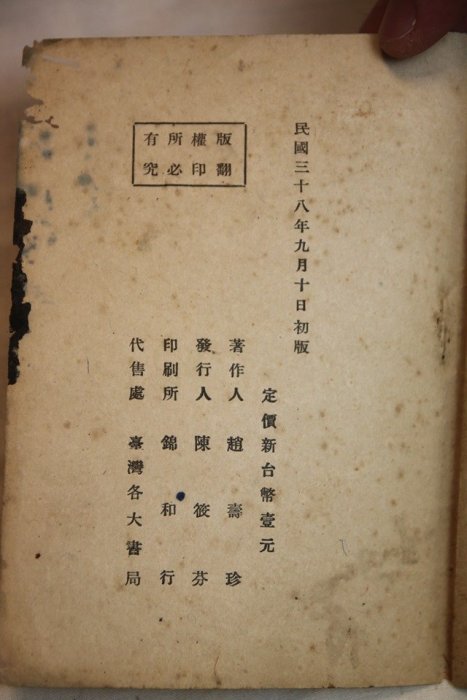 版權所有
翻印必究
民國三十八年九月十日初版
定價新台幣壹元
著作人 趙壽珍
發行人 陳筱芬
印刷所 錦和行
代售處 臺灣各大書局